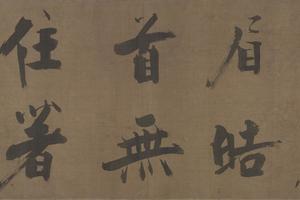 眉皓
首無
住著